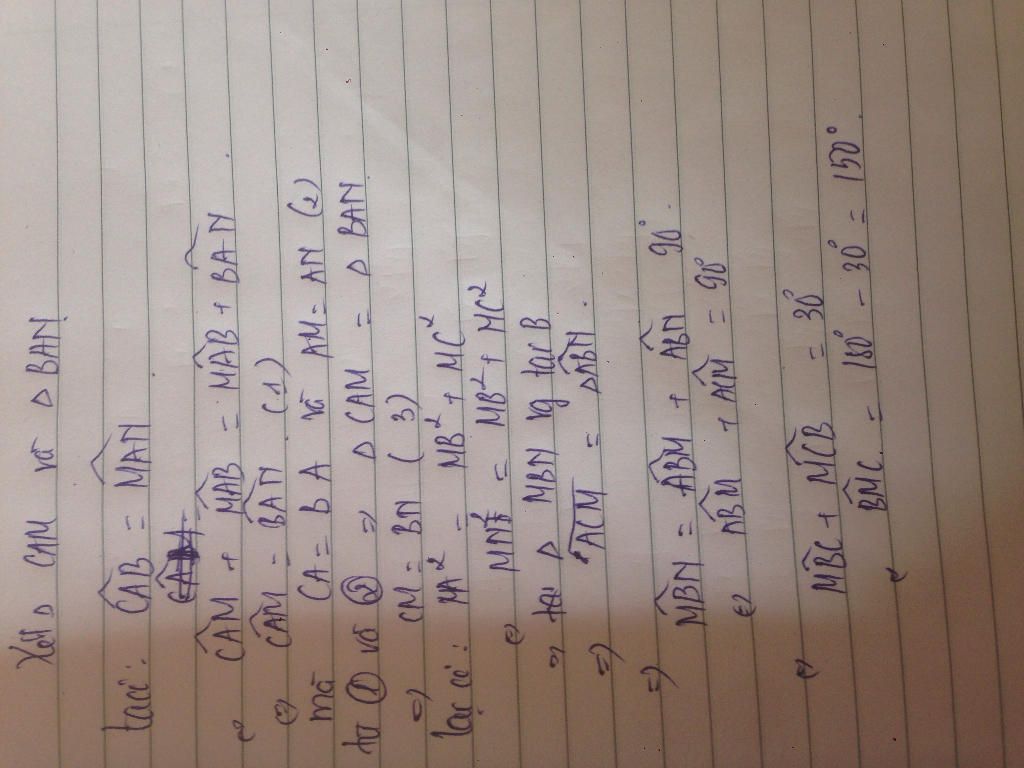 Xét Δ CAM và Δ BAN.
ta có: CÂB = MÂN
CÂM + MÂB = MÂB + BÂN
⇔ CÂM = BÂN (1)
mà CA = BA và AM = AN (2)
từ ① và ② ⇒ Δ CAM = Δ BAN
⇒ CM = BN (3)
lại có: MA² = MB² + MC²
⇔ MN² = MB² + MC²
⇒ Δ MBN vg tại B
⇒ ACM = ABN.
⇒ MB̂N = AB̂M + AB̂N 90°.
⇔ AB̂M + = 90°
⇔ MB̂C + MĈB = 30°
BM̂C = 180° - 30° = 150°.